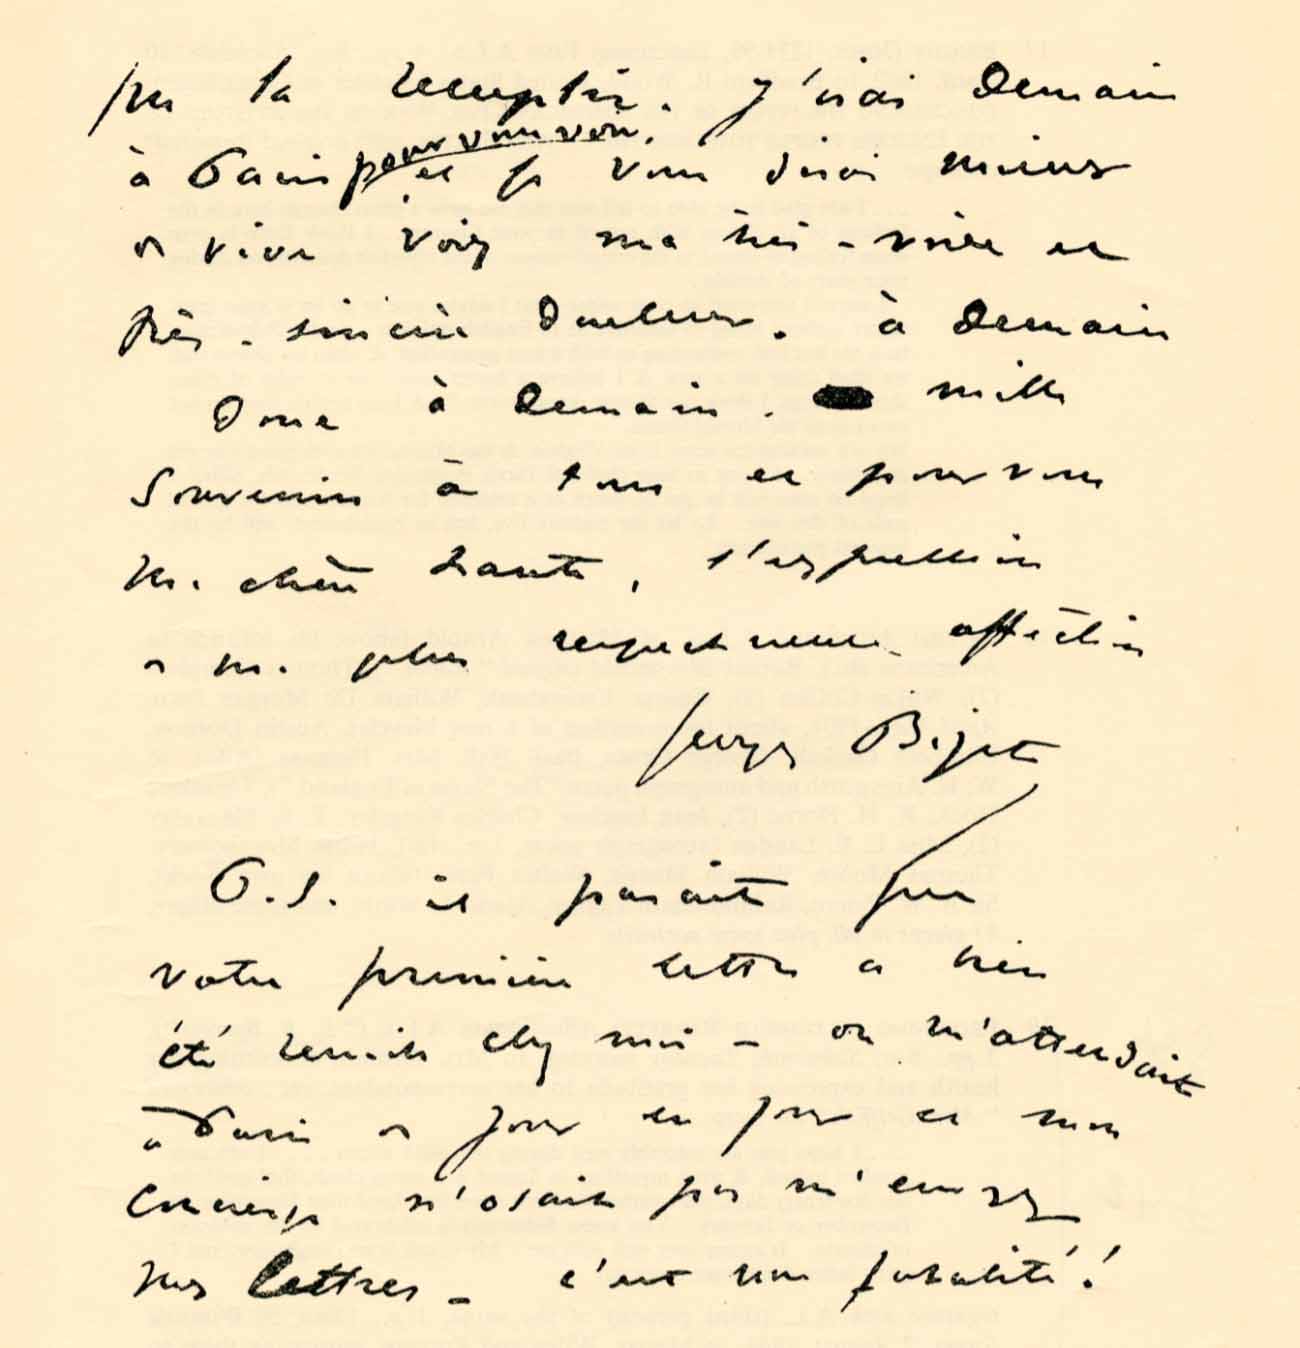 pu la remplir. J'irai demain
pour vous voir
à Paris et je vous dirai mieux
de vive voix ma très-vive et
très-sincère douleur. à demain
donc à demain. mille
souvenirs à tous et pour vous
ma chère tante, l'expression
de ma plus respectueuse affection
Georges Bizet
P.S. il parait que
votre première lettre a bien
été remise chez moi - on m'attendait
à Paris de jour en jour et mon
concierge n'osait pas m'envoyer
mes lettres - c'est une fatalité!